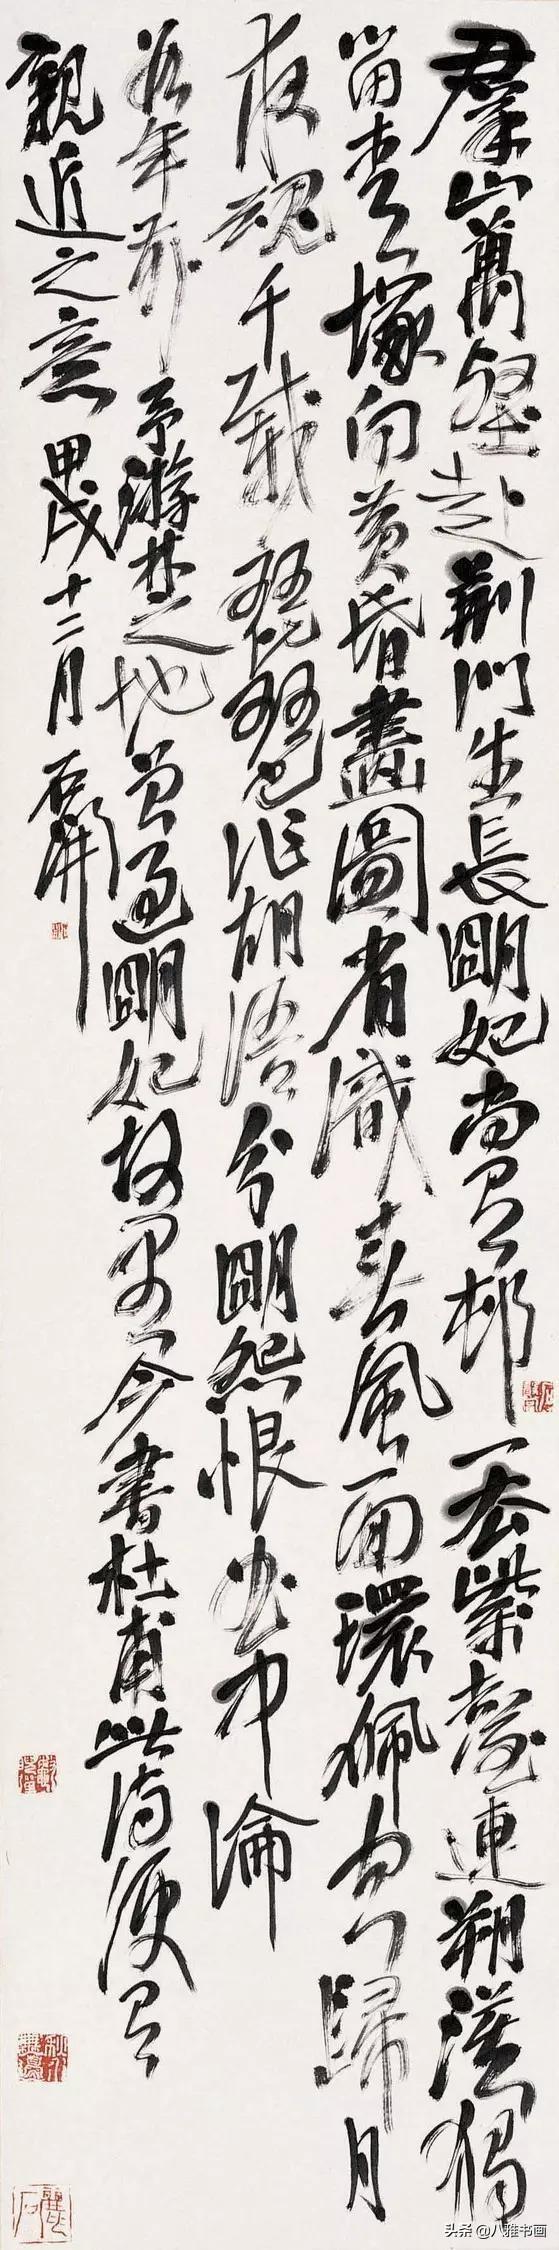 羣山萬壑赴荆門生長朙妃尚有邨一去紫臺連朔漠獨
留青塚向黄昏畫圖省識春風面環佩空歸月
夜魂千載琵琶作胡語分朙怨恨曲中論
年前予游楚之地曾過朙妃故里今書杜甫此詩便有
親近之意 甲戌十二月 石開
头条 @八雅书画